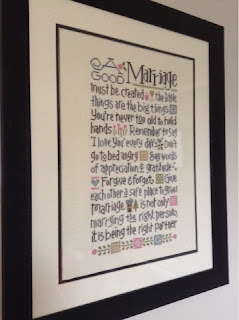 A GOOD Marriage
must be created the little
things are the big things
You're never too old to hold
hands Remember to say
I love you every day Don't
go to bed angry Say words
of appreciation & gratitude
Forgive & forget Give
each other a safe place to grow
Marriage is not only
marrying the right person,
it is being the right partner